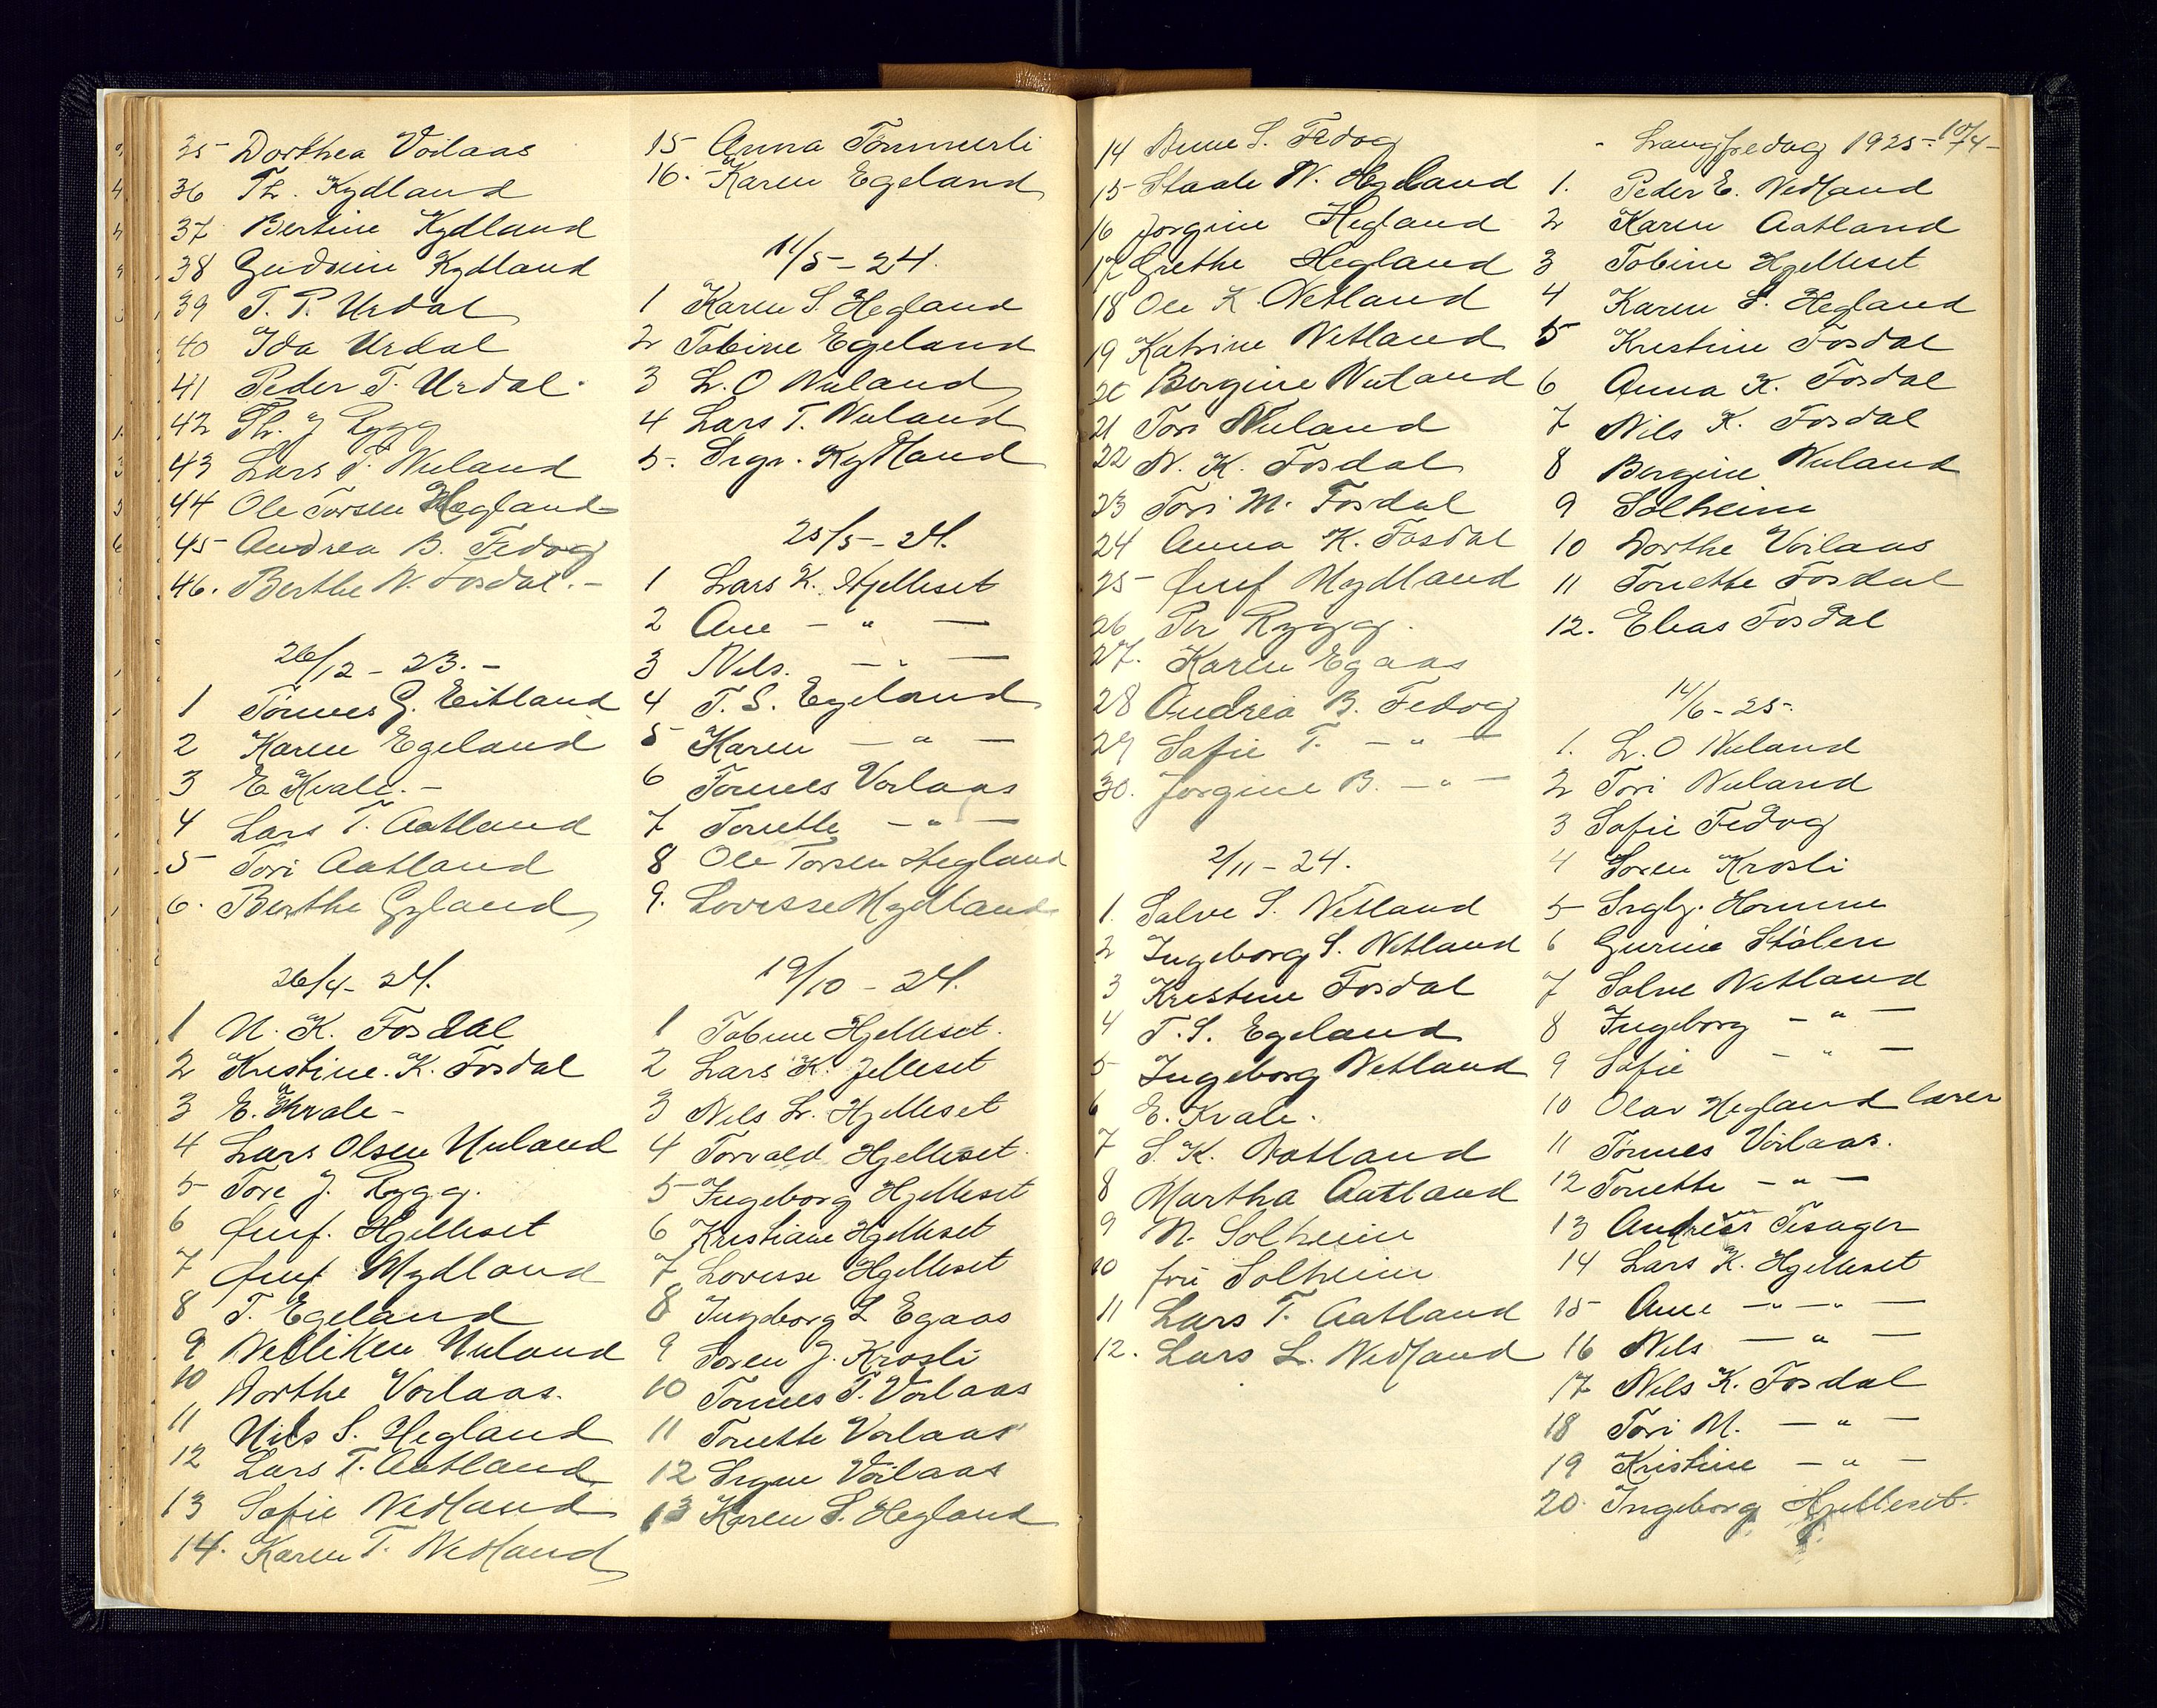 35 Dorthea Voilaas
36 Th. Kydland
37 Bertine Kydland
38 Gudrun Kydland
39 T. P. Urdal
40 Ida Urdal
41 Peder T. Urdal
42 Th. J Rygg
43 Lars T. Nuland
44 Ole Torsen Hegland
45 Andrea B. Fedog
46. Berthe N. Fosdal. -
26/12 - 23. -
1 Tønnes G. Eitland
2 Karen Egeland
3 E Kvale. -
4 Lars T. Aatland
5 Tori Aatland
6. Berthe Gyland
26/4 - 24.
1 N. K. Fosdal
2 Kristine. K. Fosdal
3 E. Kvale -
4 Lars Olsen Nuland
5 Tore J. Rygg.
6 Hjelleset
7 Mydland
8 T. Egeland
9 Nelliken Nuland
10 Dorthe Voilaas.
11 Nils S. Hegland
12 Lars T. Aatland
13 Sofie Nedland
14. Karen T. Nedland
15 Anna Tømmerli
16. Karen Egeland
11/5 - 24.
1 Karen S. Hegland
2 Tobine Egeland
3 L. O Nuland
4 Lars T. Nuland
5. Kydland
25/5 - 24.
1 Lars K. Hjelleset
2 Ane - " -
3 Nils. - " -
4 T. S. Egeland
5 Karen - " -
6 Tønnes Voilaas
7 Tonette - " -
8 Ole Torsen Hegland
9. Lovisse Mydland
19/10 - 24.
1 Tobine Hjelleset.
2 Lars K. Jelleset
3 Nils L. Hjelleset
4 Torvald Hjelleset.
5 Ingeborg Hjelleset
6 Kristiane Hjelleset
7 Lovisse Hjelleset
8 Ingeborg L Egaas
9 Soren J. Krosli
10 Tønnes T. Voilaas
11 Tonette Voilaas
12 Voilaas
13 Karen S. Hegland
14 Anne S. Fedog
15 Staale N. Hegland
16 Jorgine Hegland
17 Grethe Hegland
18 Ole K. Netland
19 Katrine Netland
20 Bergine Nuland
21 Tori Nuland
22 N. K. Fosdal
23 Tori M. Fosdal
24 Anna K. Fosdal
25 Mydland
26 Per Rygg.
27. Karen Egaas
28 Andrea B. Fedog
29 Sofie T. - " -
30. Jorgine B. - " -
2/11 - 24.
1. Salve S. Netland
2 Ingeborg S. Netland
3 Kristine Fosdal
4 T. S. Egeland
5 Ingeborg Netland
6 E. Kvale.
7 S. K. Aatland
8 Martha Aatland
9 N. Solheim
10 fru Solheim
11 Lars T. Aatland
12. Lars L. Nedland
Langfredag 1925 - 10/4 -
1. Peder E. Nedland
2 Karen Aatland
3 Tobine Hjelleset
4 Karen S. Hegland
5 Kristine Fosdal
6 Anna K. Fosdal
7 Nils K. Fosdal
8 Bergine Nuland
9 Solheim
10 Dorthe Voilaas
11 Tonette Fosdal
12. Elias Fosdal
14/6 - 25 -
1. L. O Nuland
2 Tori Nuland
3 Sofie Fedog
4 Soren Krosli
5 Homme
6 Gurine Stølen
7 Salve Netland
8 Ingeborg - " -
9 Sofie - " -
10 Olav Hegland lærer
11 Tønnes Voilaas.
12 Tonette - " -
13 Andreas Tesager
14 Lars K. Hjelleset
15 Ane - " - " -
16 Nils - " -
17 Nils K. Fosdal
18 Tori M. - " -
19 Kristine - " -
20. Ingeborg Hjelleset.